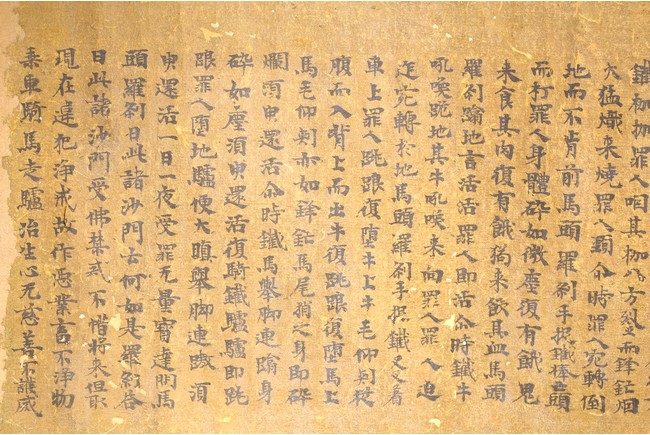 鐵枷枷罪人咽其枷八方剱而鋒鋩烟
火猛熾来燒罪人頸尒時罪人宛轉倒
地而不肯前馬頭羅刹手捉鐵棒頭
而打罪人身體碎如微塵復有餓鬼
来食其肉復有餓狗来飲其血馬頭
羅刹蹹地言活活罪人即活尒時鐵牛
吼喚跑地其牛吼喚来向罪人罪人迫
迮宛轉於地馬頭羅刹手捉鐵叉叉著
車上罪人跳踉復墮牛上牛毛仰刺從
腹而入背上而出牛復跳踉復墮馬上
馬毛仰刺亦如鋒鋩馬尾捎之身即碎
爛湏臾還活尒時鐵馬舉脚連蹹身
碎如塵湏臾還活復騎鐵驢驢即跑
踉罪人墮地驢便大瞋舉脚連蹴湏
臾還活一日一夜受罪无量寳達問馬
頭羅刹曰此諸沙門云何如其羅刹答
曰此諸沙門受佛禁戒不惜将来但取
現在違犯浄戒故作惡業言不浄物
乗車騎馬走驢冶生心无慈善不護威